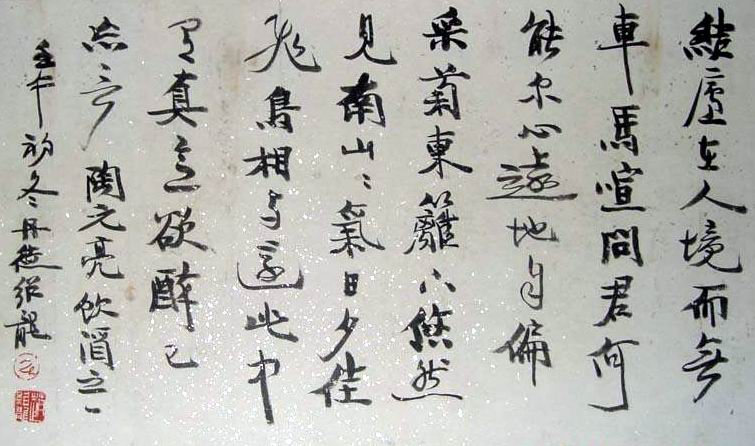 結廬在人境而無
車馬喧問君何
能尔心遠地自偏
采菊東籬下悠然
見南山々氣日夕佳
飛鳥相與還此中
有真意欲醉已
忘言 陶元亮飲酒之一
壬午初冬丹徒紹龍